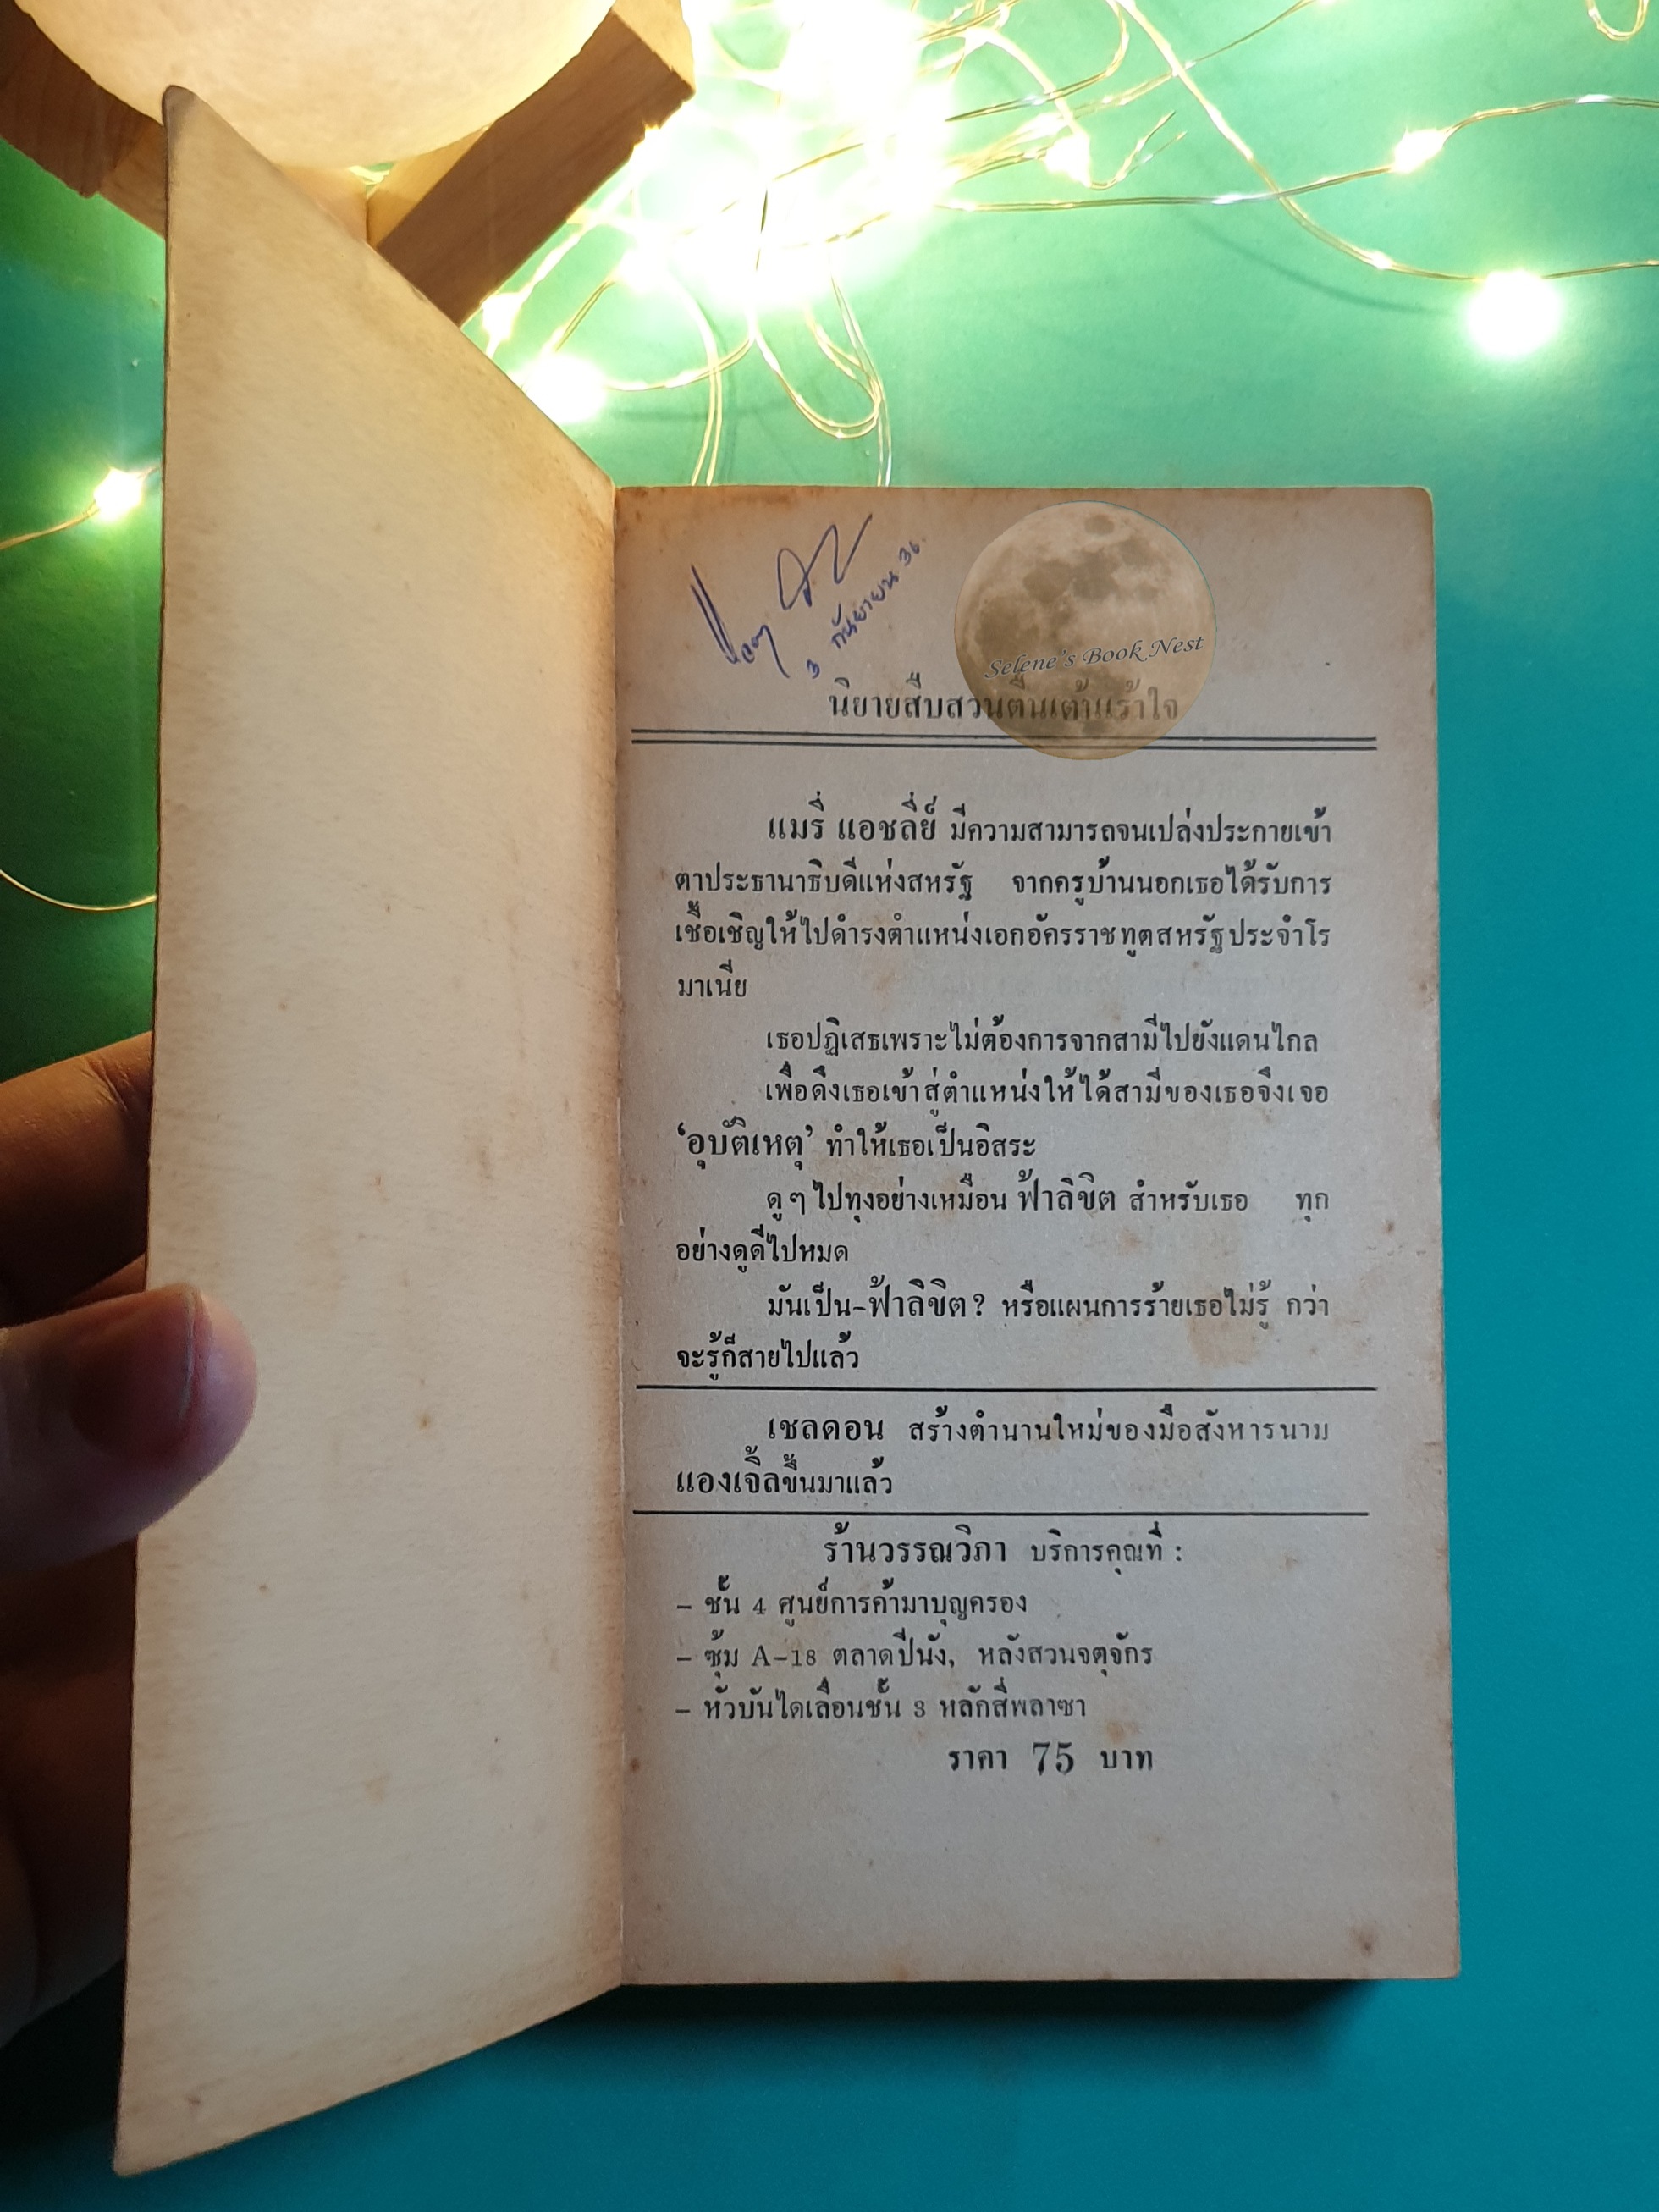 3 กันยายน 36
Selene's Book Nest
นิยายสืบสวนตื่นเต้นเร้าใจ
แมรี่ แอชลี่ย์ มีความสามารถจนเปล่งประกายเข้า
ตาประธานาธิบดีแห่งสหรัฐ จากครูบ้านนอกเธอได้รับการ
เชื้อเชิญให้ไปดำรงตำแหน่งเอกอัครราชทูตสหรัฐประจำโร
มาเนีย
เธอปฏิเสธเพราะไม่ต้องการจากสามีไปยังแดนไกล
เพื่อดึงเธอเข้าสู่ตำแหน่งให้ได้สามีของเธอจึงเจอ
‘อุบัติเหตุ’ ทำให้เธอเป็นอิสระ
ดูๆ ไปทุงอย่างเหมือน ฟ้าลิขิต สำหรับเธอ ทุก
อย่างดูดีไปหมด
มันเป็น-ฟ้าลิขิต? หรือแผนการร้ายเธอไม่รู้ กว่า
จะรู้ก็สายไปแล้ว
เชลดอน สร้างตำนานใหม่ของมือสังหารนาม
แองเจิ้ลขึ้นมาแล้ว
ร้านวรรณวิภา บริการคุณที่ :
– ชั้น 4 ศูนย์การค้ามาบุญครอง
– ซุ้ม A-18 ตลาดปีนัง, หลังสวนจตุจักร
– หัวบันไดเลื่อนชั้น 3 หลักสี่พลาซา
ราคา 75 บาท